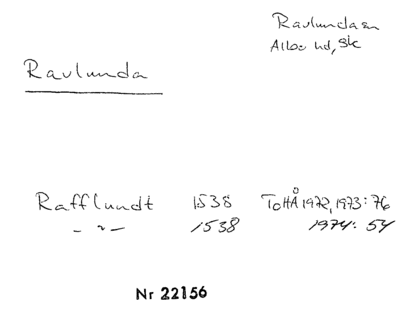 Ravlunda sn
Albo hd, Sk
Ravlunda
Rafflundt 1538 ToHÅ 1972, 1973: 76
— " — 1538 1974: 54
Nr 22156